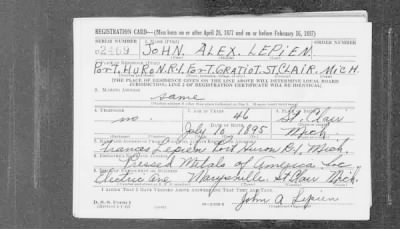 REGISTRATION CARD—(Men born on or after April 28, 1877 and on or before February 16, 1897)
SERIAL NUMBER 1. NAME (Print) ORDER NUMBER
2469 JOHN ALEX. LEPIEN
2. PLACE OF RESIDENCE (Print)
PORT HURON R-1 FORT GRATIOT ST. CLAIR. MICH
[THE PLACE OF RESIDENCE GIVEN ON THE LINE ABOVE WILL DETERMINE LOCAL BOARD
JURISDICTION; LINE 2 OF REGISTRATION CERTIFICATE WILL BE IDENTICAL]
3. MAILING ADDRESS
same
4. TELEPHONE 5. AGE IN YEARS 6. PLACE OF BIRTH
no. 46 St. Clair
July 10 1895 Mich
Frances Lepien Port Huron R1, Mich.
Pressed Metals of America Inc
Electric Ave Marysville St Clair Mich.
I AFFIRM THAT I HAVE VERIFIED ABOVE ANSWERS AND THAT THEY ARE TRUE.
D. S. S. Form 1
John A Lepien